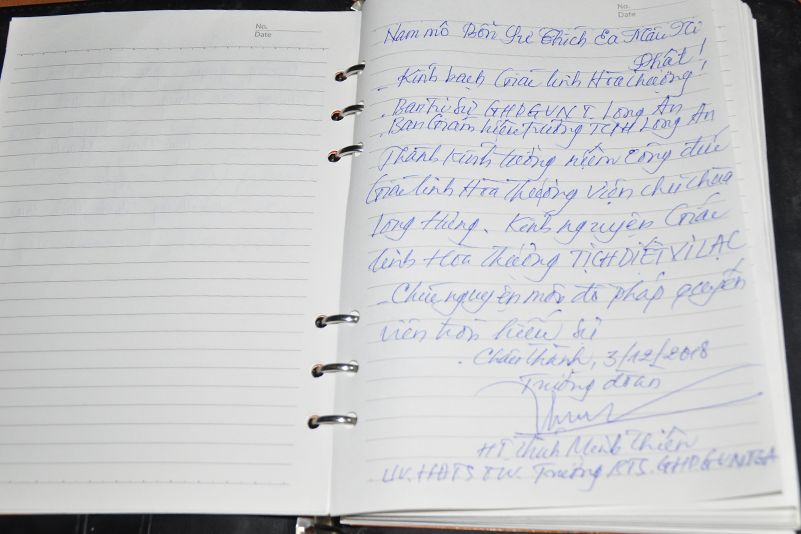 No.
Date
No.
Date
Nam mô Bổn Sư Thích Ca Mâu Ni
Phật!
- Kính bạch Giác linh Hòa thượng!
. Ban Trị Sự GHPGVN T. Long An
. Ban Giám hiệu Trường TCPH Long An
Thành kính tưởng niệm công đức
Giác linh Hòa Thượng Viện chủ chùa
Long Hưng. Kính nguyện Giác
linh Hòa Thượng TỊCH DIỆT VI LẠC
- Chúc nguyện môn đồ pháp quyến
viên tròn hiếu sự
. Châu Thành, 3/12/2018
Trưởng đoàn
HT. Thích Minh Thiện
UV. HĐTS TW. Trưởng BTS. GHPGVN TLA